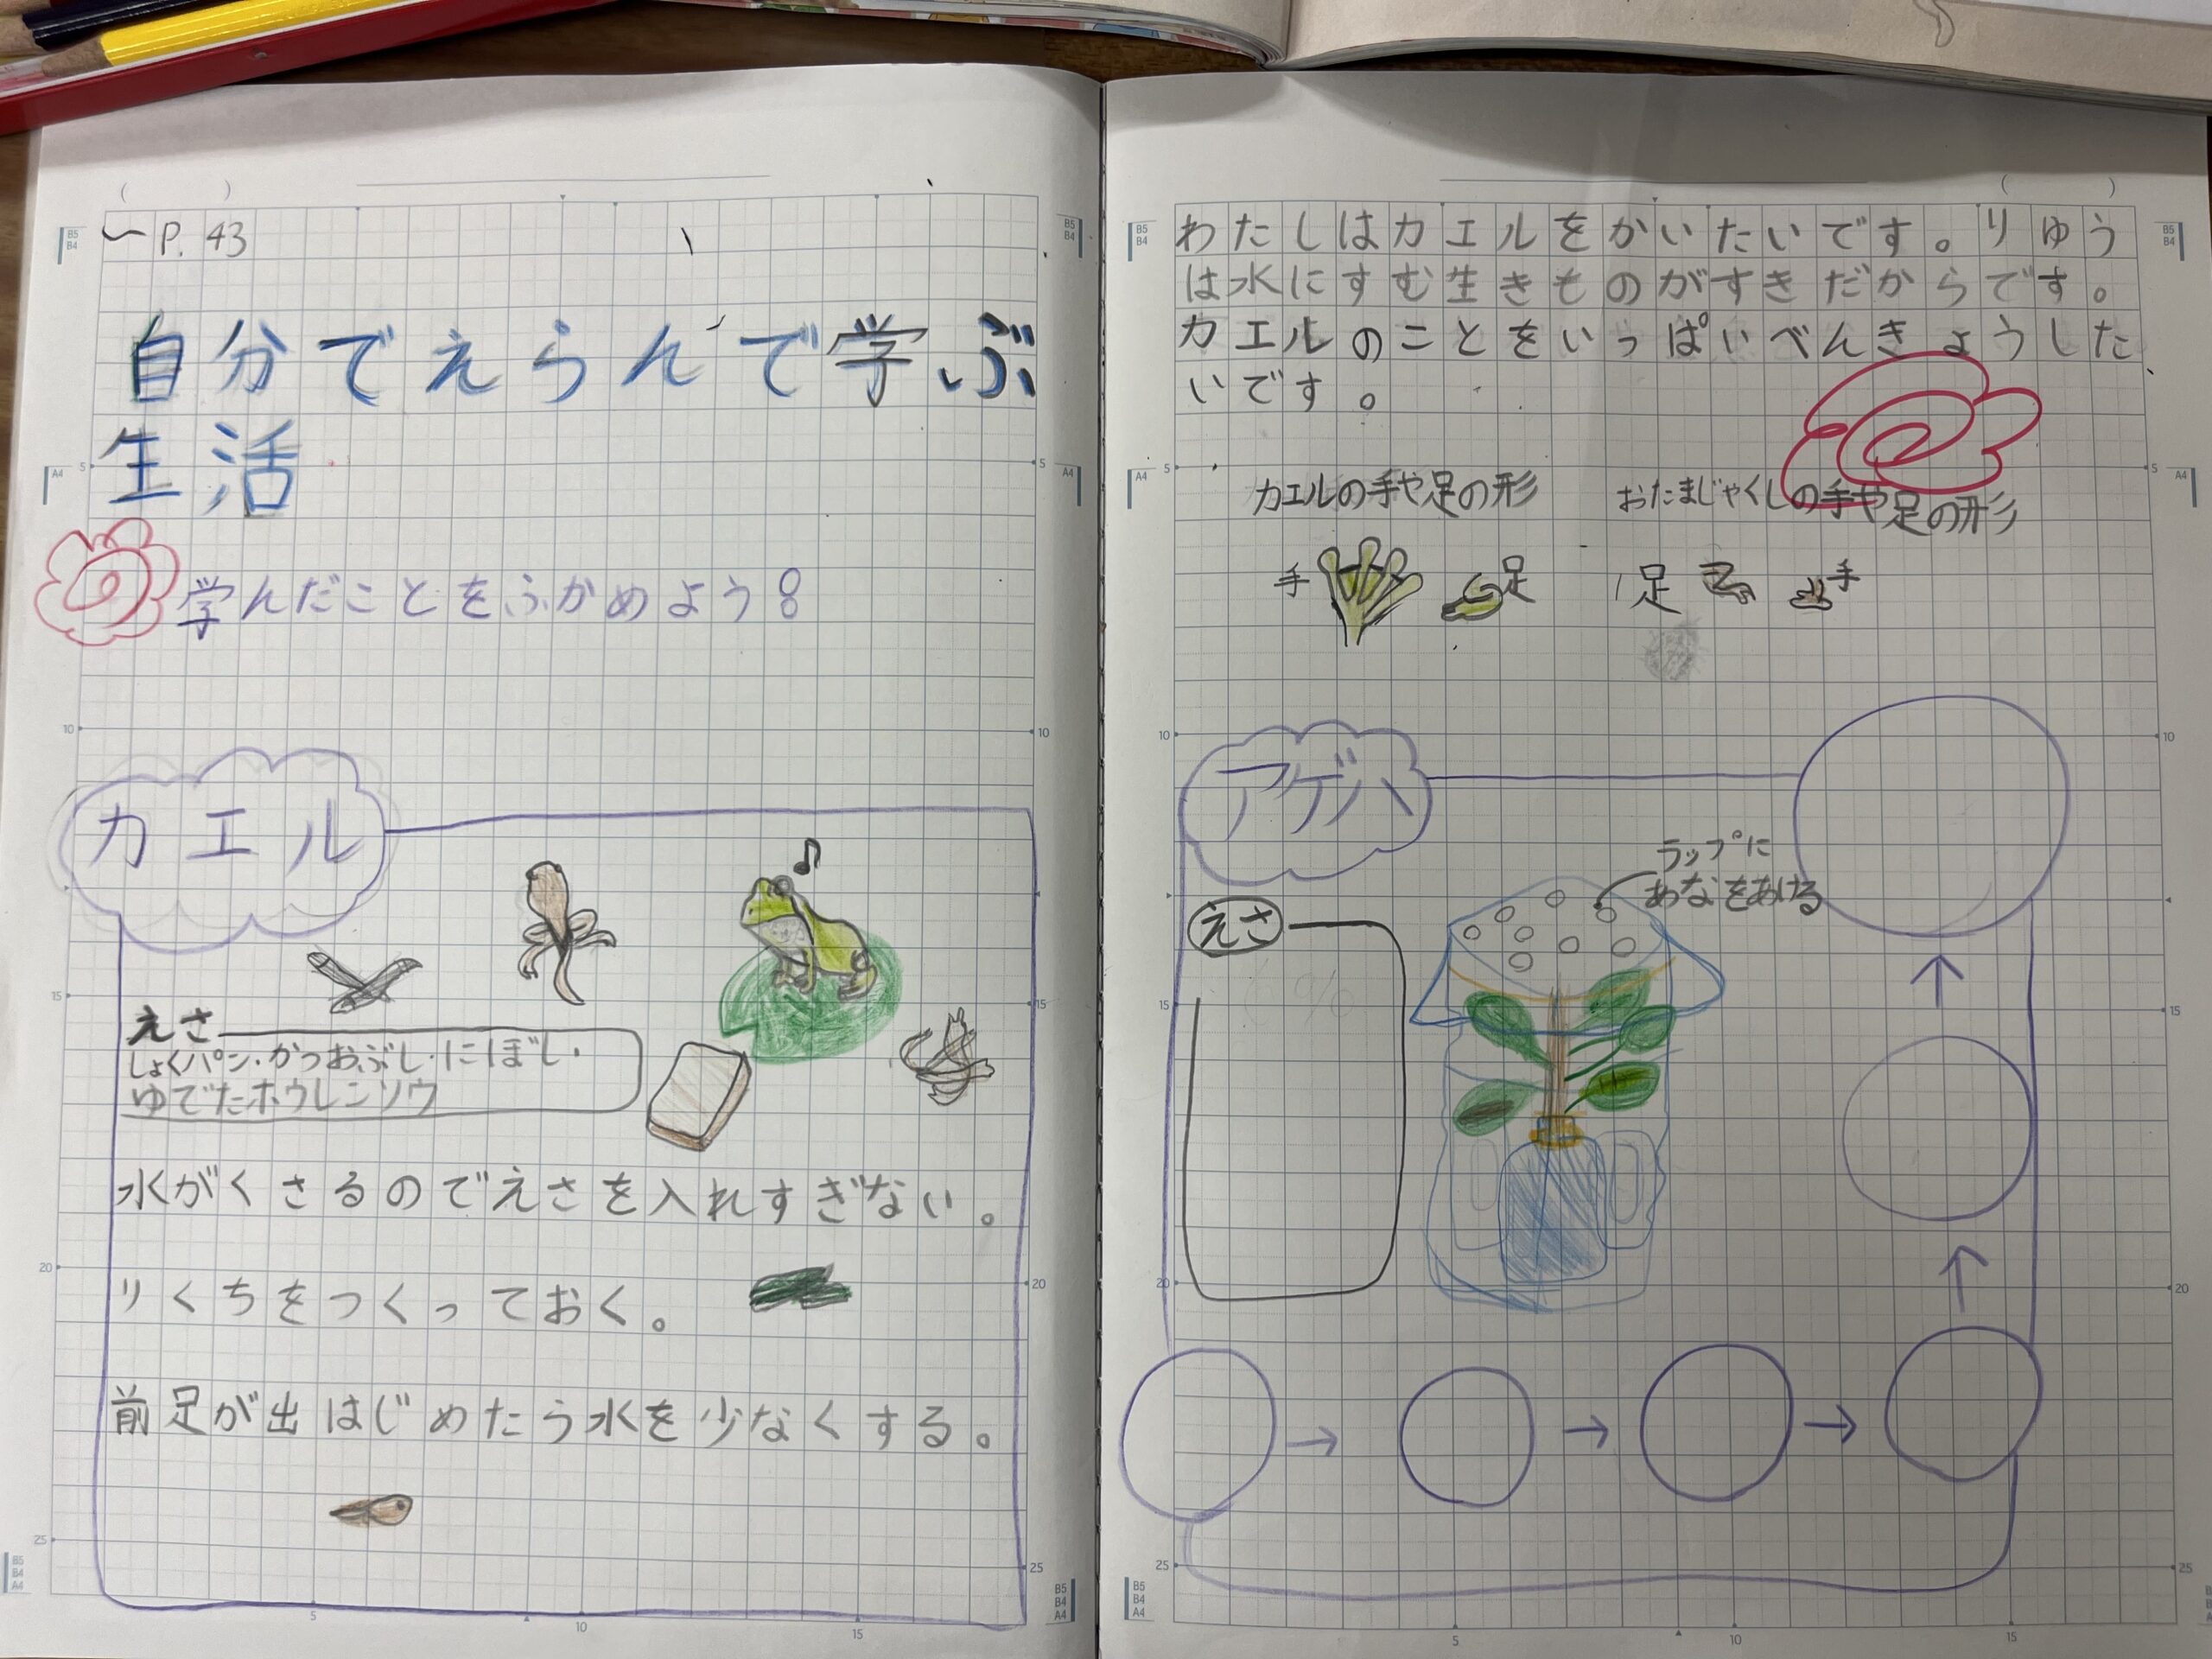 ～P. 43
自分でえらんで学ぶ
生活
学んだことをふかめよう!
カエル
えさ
しょくパン・かつおぶし・にぼし・
ゆでたホウレンソウ
水がくさるのでえさを入れすぎない。
りくちをつくっておく。
前足が出はじめたら水を少なくする。
わたしはカエルをかいたいです。りゆう
は水にすむ生きものがすきだからです。
カエルのことをいっぱいべんきょうした
いです。
カエルの手や足の形
おたまじゃくしの手や足の形
手
足
足
手
アゲハ
ラップに
あなをあける
えさ